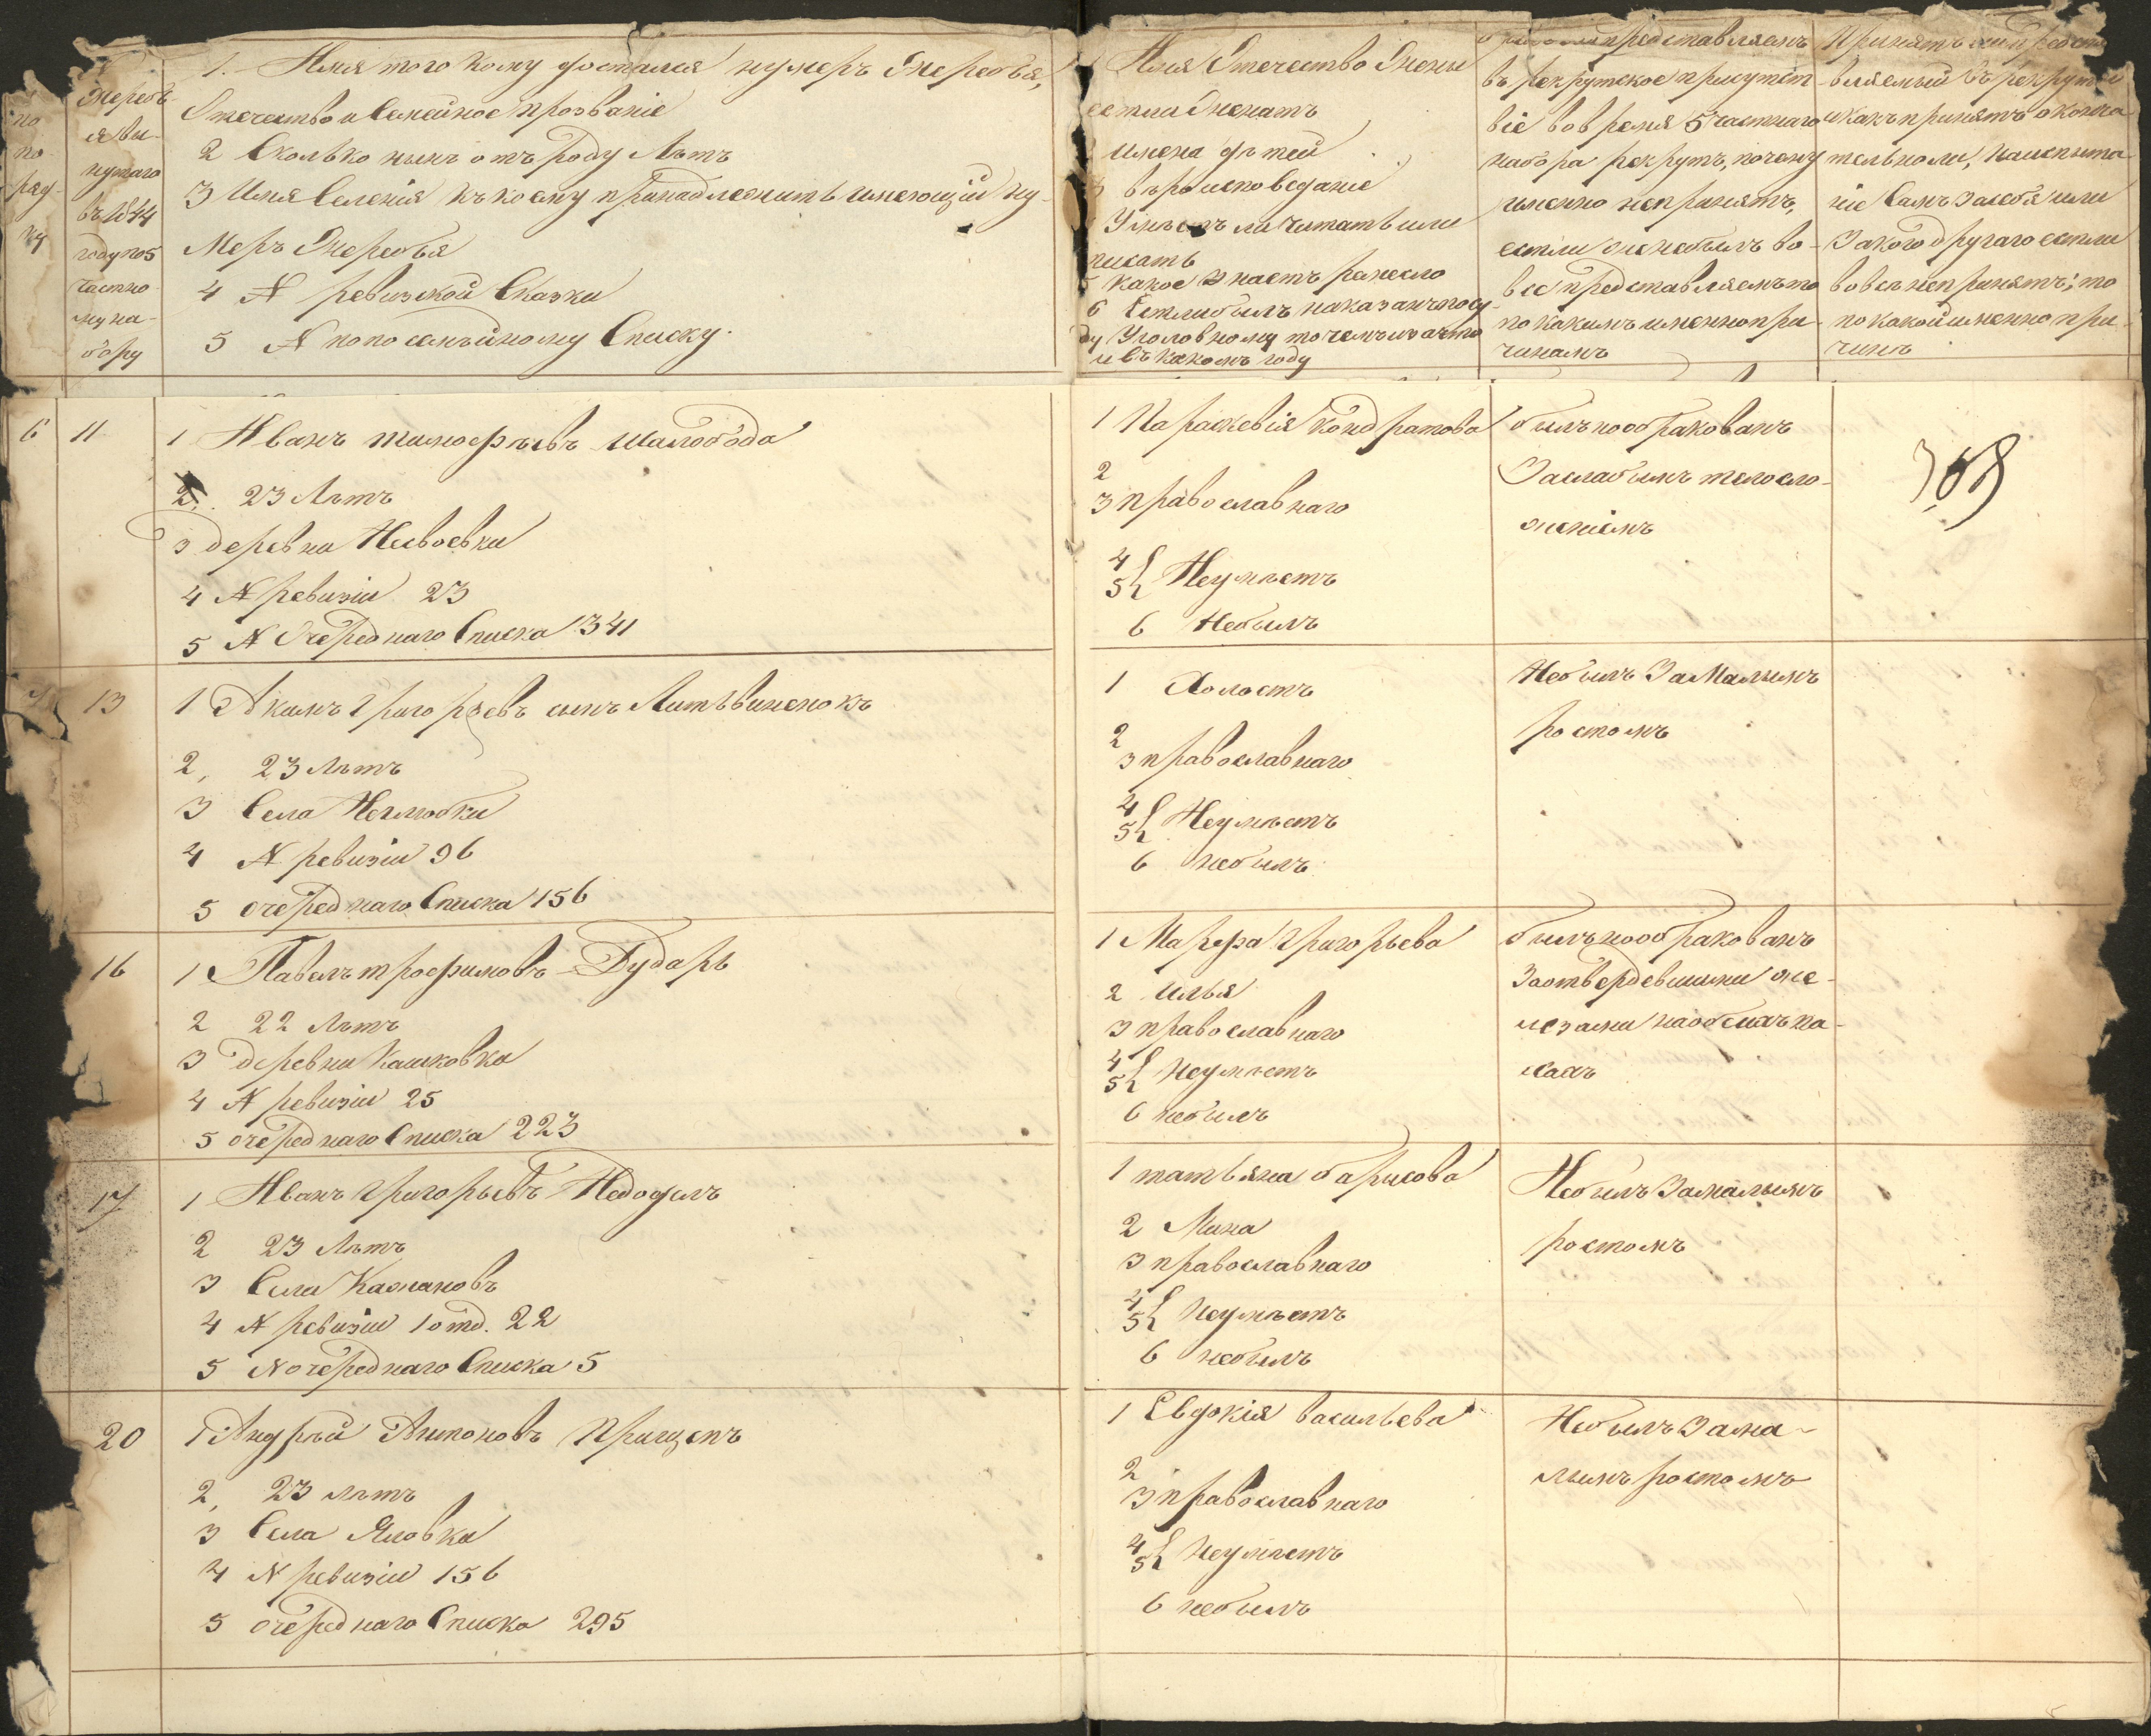 по
по
ряд
ку
Жеребъ
я вы-
нутаго
въ 1844
году по 5
частно
му на-
бору
1. Имя того кому достался нумеръ Жеребья,
Отечество и Семейное прозваніе
2 Сколько нынѣ отъ роду Лѣтъ
3 Имя Селенія къ коему принадлежитъ имеющій ну-
меръ Жеребья
4 № ревизской Сказки
5 № по посемѣйному Списку.
Имя Отечество Жены
естли Женатъ
имена дѣтей
3 вѣроисповеданіе
Умѣетъ ли Читать или
писать
5 какое знаетъ ремесло
6 Естли былъ наказанъ по су-
ду Уголовному то чемъ за что
и въ какомъ году
представляемъ
въ рекрутское присутст
віе во время 5 частнаго
набора рекрутъ, почему
именно непринятъ,
естли же небылъ во-
все представляемъ то
по какимъ именно при-
чинамъ
Принятъ ли предста
вляемый въ рекруты
и какъ принятъ оконча
тельно ли, на испыта
ніе Самъ за себя или
За кого другаго естли
вовсе непринятъ; то
по какой именно при-
чинѣ
6 11
1 Иванъ тимофѣевъ шалобода
2. 23 Лѣтъ
3 деревни Несвоевки
4 № ревизіи 23
5 № Очереднаго Списка 341
1 Параскевія кондратова
2
3 православнаго
4
5 Неумѣетъ
6 Небылъ
былъ но обракованъ
За слабымъ телосло-
женіемъ
13
1 Акимъ григорьевъ сынъ Литвиненокъ
2, 23 Лѣтъ
3 Села Неглюбки
4 № ревизіи 96
5 очереднаго Списка 156
1 Холостъ
2
3 православнаго
4
5 Неумѣетъ
6 небылъ
Небылъ За Малымъ
ростомъ
16
1 Павелъ трофимовъ Дударь
2 22 Лѣтъ
3 деревни Кашковки
4 № ревизіи 25
5 очереднаго Списка 223
1 Марфа григорьева
2 илья
3 православнаго
4
5 Неумѣетъ
6 небылъ
былъ но обракованъ
За отвердевшими же-
лезами на обеихъ па-
хахъ
17
1 Иванъ григорьевъ
2 23 Лѣтъ
3 Села
4 № ревизіи 1 отд. 22
5 № очереднаго Списка 5
1 татьяна барисова
2 Мина
3 православнаго
4
5 Неумѣетъ
6 небылъ
Небылъ За малымъ
ростомъ
20
1 Андрѣй Антоновъ Прищепъ
2, 23 лѣтъ
3 Села Яловки
4 № ревизіи 156
5 очереднаго Списка 295
1 Евдокія васильева
2
3 православнаго
4
5 Неумѣетъ
6 небылъ
Небылъ За ма-
лымъ ростомъ